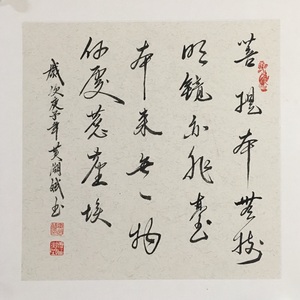 菩提本無樹
明鏡亦非臺
本来無一物
何處惹塵埃
歲次庚子年黄斌书